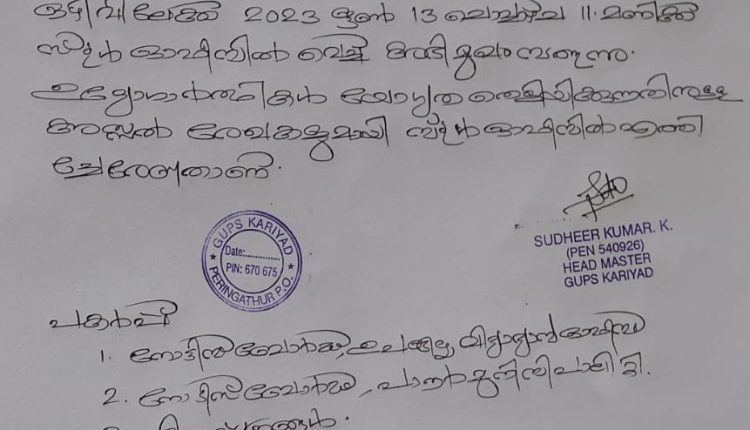 ഒഴിവിലേക്ക് 2023 ജൂൺ 13 ചൊവ്വാഴ്ച 11 മണിക്ക്
സ്കൂൾ ഓഫീസിൽ വെച്ച് അഭിമുഖം നടത്തുന്നു.
ഉദ്യോഗാർത്ഥികൾ യോഗ്യത തെളിയിക്കുന്നതിനുള്ള
അസ്സൽ രേഖകളുമായി സ്കൂൾ ഓഫീസിൽ എത്തി
ച്ചേരേണ്ടതാണ്.
GUPS KARIYAD
Date:
PIN: 670 675
PERINGATHUR P.O.
SUDHEER KUMAR. K.
(PEN 540926)
HEAD MASTER
GUPS KARIYAD
പകർപ്പ്
1. നോട്ടീസ് ബോർഡ്, ഉപജില്ല വിദ്യാഭ്യാസ ഓഫീസ്
2. നോട്ടീസ് ബോർഡ്, പാനൂർ മുനിസിപാലിറ്റി.